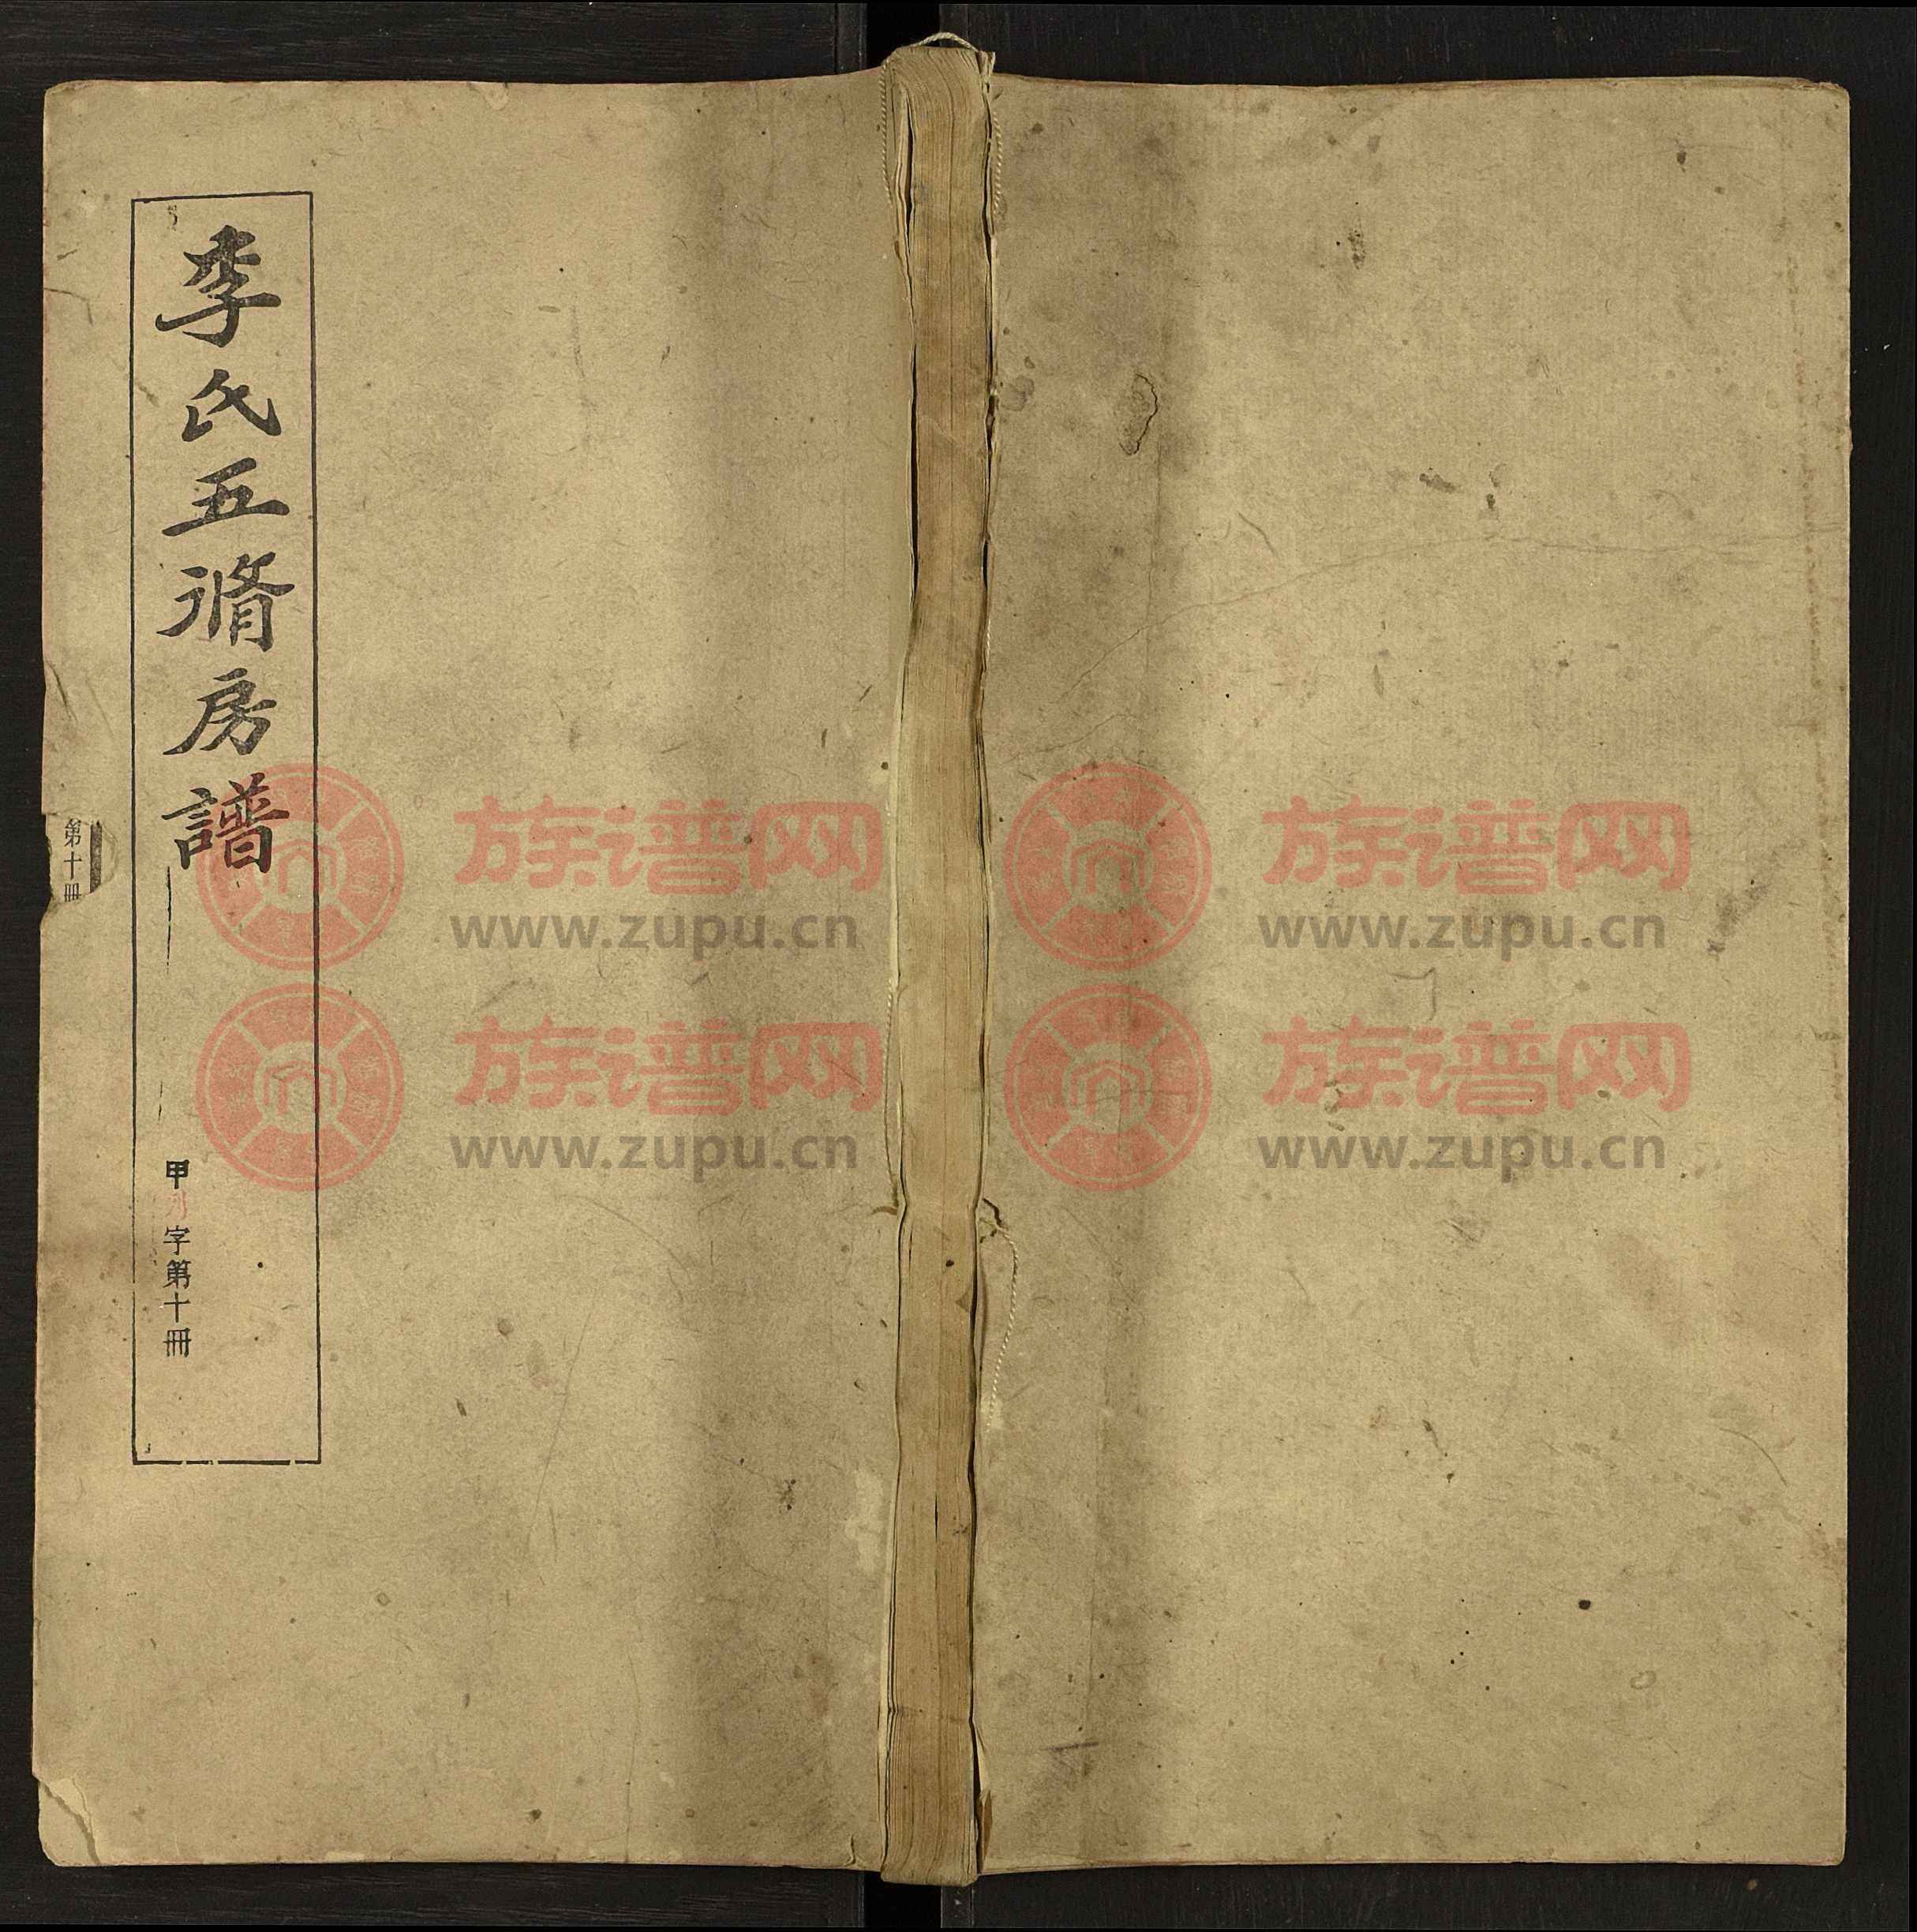 李氏五脩房譜
甲
字第十冊
第十冊
族谱网
www.zupu.cn
族谱网
www.zupu.cn
族谱网
www.zupu.cn
族谱网
www.zupu.cn